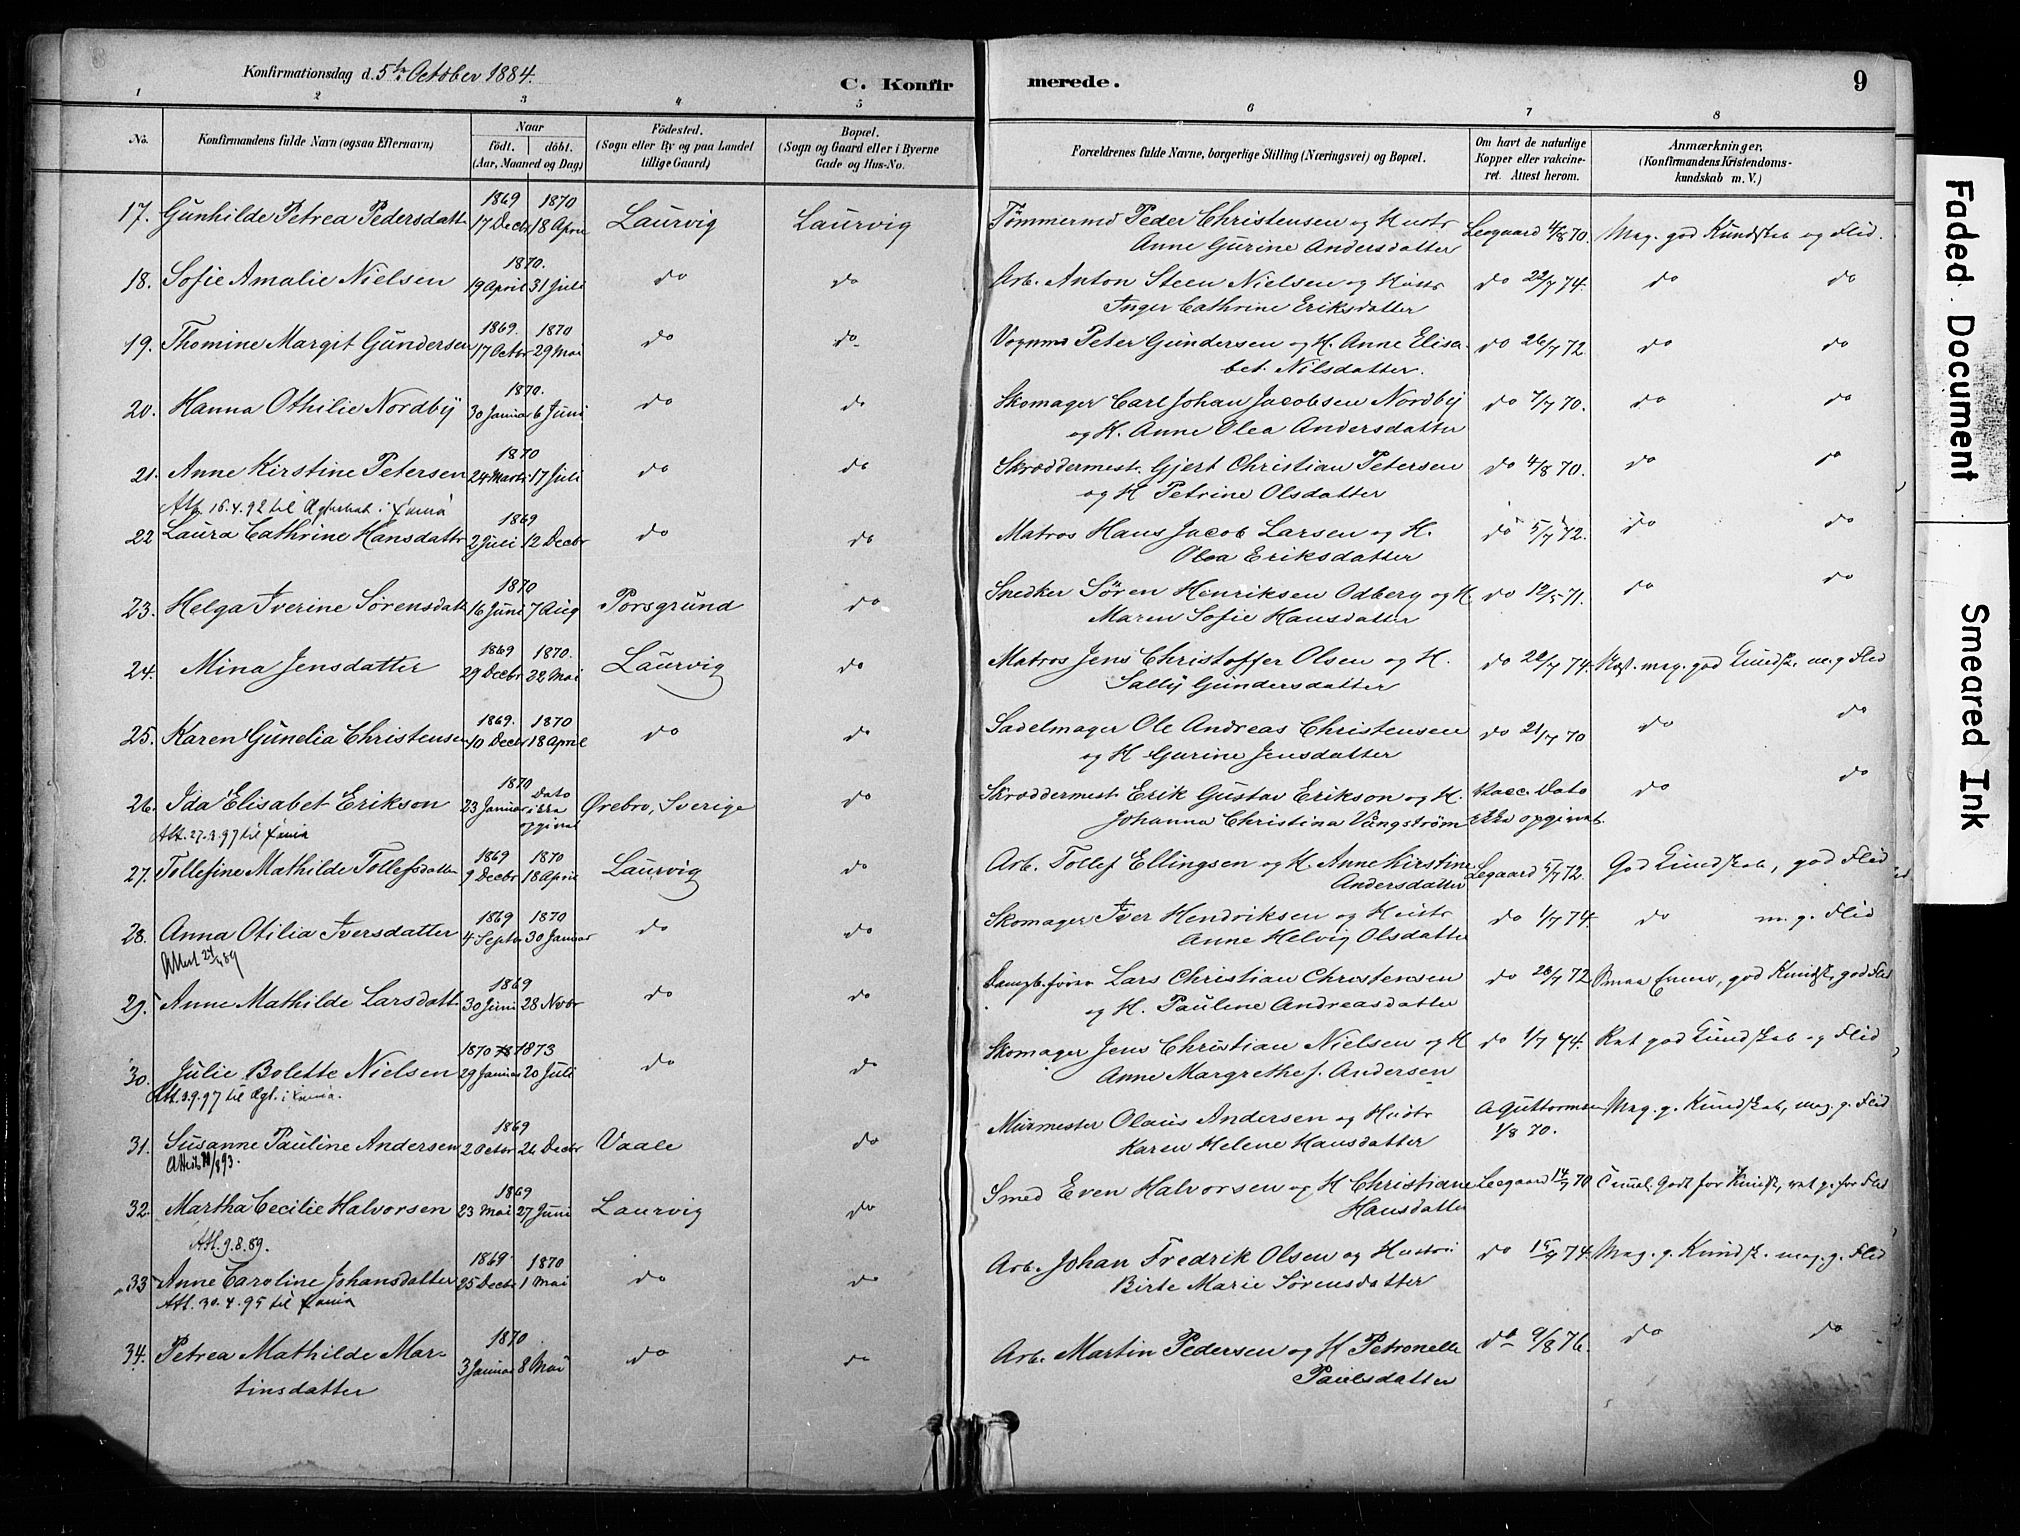 Konfirmationsdag d. 5te October 1884.
C. Konfir
merede.
9
1 2 3 4 5 6 7 8
No.
Konfirmandens fulde Navn (ogsaa Efternavn)
Naar
födt. döbt.
(Aar, Maaned og Dag)
Födested.
(Sogn eller By og paa Landet
tillige Gaard)
Bopæl.
(Sogn og Gaard eller i Byerne
Gade og Hus-No.
Forældrenes fulde Navne, borgerlige Stilling (Næringsvei) og Bopæl.
Om havt de naturlige
Kopper eller vakcine-
ret. Attest herom.
Anmærkninger,
(Konfirmandens Kristendoms-
kundskab m. V.)
1869 1870
17. Gunhilde Petrea Pedersdatt 17 Decbr 18 April Laurvig Laurvig Tømmermd Peder Christensen og Hustr Leegaard 4/8 70. Meg. god Kundskab og Flid.
Anne Gurine Andersdatter
1870.
18. Sofie Amalie Nielsen 19 April 31 Juli do do Arb. Anton Steen Nielsen og Hustr do 22/7 74. do do
Inger Cathrine Eriksdatter
1869. 1870
19. Thomine Margit Gundersen 17 Octbr 29 Mai do do Vognmd Peter Gundersen og H. Anne Elisa- do 26/7 72. do do
bet Nilsdatter.
1870.
20. Hanna Othilie Nordby 30 Januar 6 Juni do do Skomager Carl Johan Jacobsen Nordby do 7/7 70. do do
og H. Anne Olea Andersdatter
1870
21. Anne Kirstine Petersen 24 Marts 17 Juli do do Skræddermest. Gjert Christian Petersen do 4/8 70. do do
og H Petrine Olsdatter
Att. 16.4.92 til Ægteskab i Xania
1869
22 Laura Cathrine Hansdattr 2 Juli 12 Decbr do do Matros Hans Jacob Larsen og H. do 5/7 72. do do
Olea Eriksdatter
1870
23. Helga Iverine Sørensdatt 16 Juni 7 Aug Porsgrund do Snedker Søren Henriksen Odberg og H. do 12/5 71. do do
Maren Sofie Hansdatter
1869 1870.
24. Mina Jensdatter 29 Decbr 22 Mai Laurvig do Matros Jens Christoffer Olsen og H. do 22/7 74. Næst. meg. god Kundsk. m. g. Flid
Sally Gundersdatter
1869. 1870
25. Karen Gunelia Christensen 10 Decbr 18 April do do Sadelmager Ole Andreas Christensen do 21/7 70 do do
og H Gurine Jensdatter
1870
26. Ida Elisabet Erikson 23 Januar Dato ikke opgivet Ørebro, Sverige do Skræddermest Erik Gustav Erikson og H. Vacc. Dato do do
Johanna Christina Vångström ikke opgivet.
Att. 27.3.97 til Xania
1869 1870
27. Tollefine Mathilde Tollefsdatter 9 Decbr 18 April Laurvig do Arb. Tollef Ellingsen og H. Anne Kirstine Legaard 5/7 72. God Kundskab, god Flid
Andersdatter
1869 1870
28. Anna Otilia Iversdatter 4 Septbr 30 Januar do do Skomager Iver Hendriksen og Hustr do 1/7 74. do m. g. Flid
Anne Helvig Olsdatter
Attest
1869
29. Anne Mathilde Larsdatt 30 Juni 28 Novbr do do Dampb.fører Lars Christian Christensen do 26/7 72 Smaa Evner, god Kundsk, god Flid
og H. Pauline Andreasdatter
1870 1873
30. Julie Bolette Nielsen 29 Januar 20 Juli do do Skomager Jens Christian Nielsen og H do 1/7 74. Ret god Kundskab og Flid
Anne Margrethe f. Andersen
Att. 3.9.97 til Ægt. i Xania.
1869
31. Susanne Pauline Andersen 2 Octbr 26 Decbr Vaale do Murmester Olaus Andersen og Hustr A Guttormsen Meg. g. Kundskab, meg. g. Flid
Karen Helene Hansdatter 1/8 70.
1869
32. Martha Cecilie Halvorsen 23 Mai 27 Juni Laurvig do Smed Even Halvorsen og H Christiane Leegaard 14/7 70
Hansdatter
Att. 9.8.89.
1869. 1870
33 Anne Caroline Johansdatter 25 Decbr 1 Mai do do Arb. Johan Fredrik Olsen og Hustru do 15/9 74. Meg. g. Kundsk. meg. g. Flid
Birte Marie Sørensdatter
Att. 30.4.95 til Xania
1870
34. Petrea Mathilde Mar- 3 Januar 8 Mai do do Arb. Martin Pedersen og H Petronelle do 9/8 76. do do
tinsdatter Paulsdatter
Faded Document
Smeared Ink